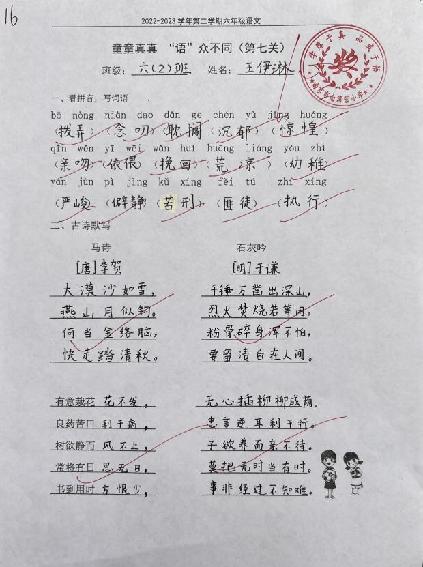 16
2022-2023学年第二学期六年级语文
童童真真 “语”众不同（第七关）
班级：六（2）班 姓名：王伊琳
一、看拼音，写词语
bō nòng niàn dao dān ge chén yù jīng huáng
（拨弄）（念叨）（耽搁）（沉郁）（惊惶）
qīn wěn yī wēi wǎn huí huāng liáng yòu zhì
（亲吻）（依偎）（挽回）（荒凉）（幼稚）
yán jùn pì jìng kǔ xíng fěi tú zhí xíng
（严峻）（僻静）（苦刑）（匪徒）（执行）
二、古诗默写
马诗 石灰吟
[唐]李贺 [明]于谦
大漠沙如雪， 千锤万凿出深山，
燕山月似钩。 烈火焚烧若等闲。
何当金络脑， 粉骨碎身浑不怕，
快走踏清秋。 要留清白在人间。
有意栽花花不发， 无心插柳柳成荫。
良药苦口利于病， 忠言逆耳利于行。
树欲静而风不止， 子欲养而亲不待。
常将有日思无日， 莫把无时当有时。
书到用时方恨少， 事非经过不知难。